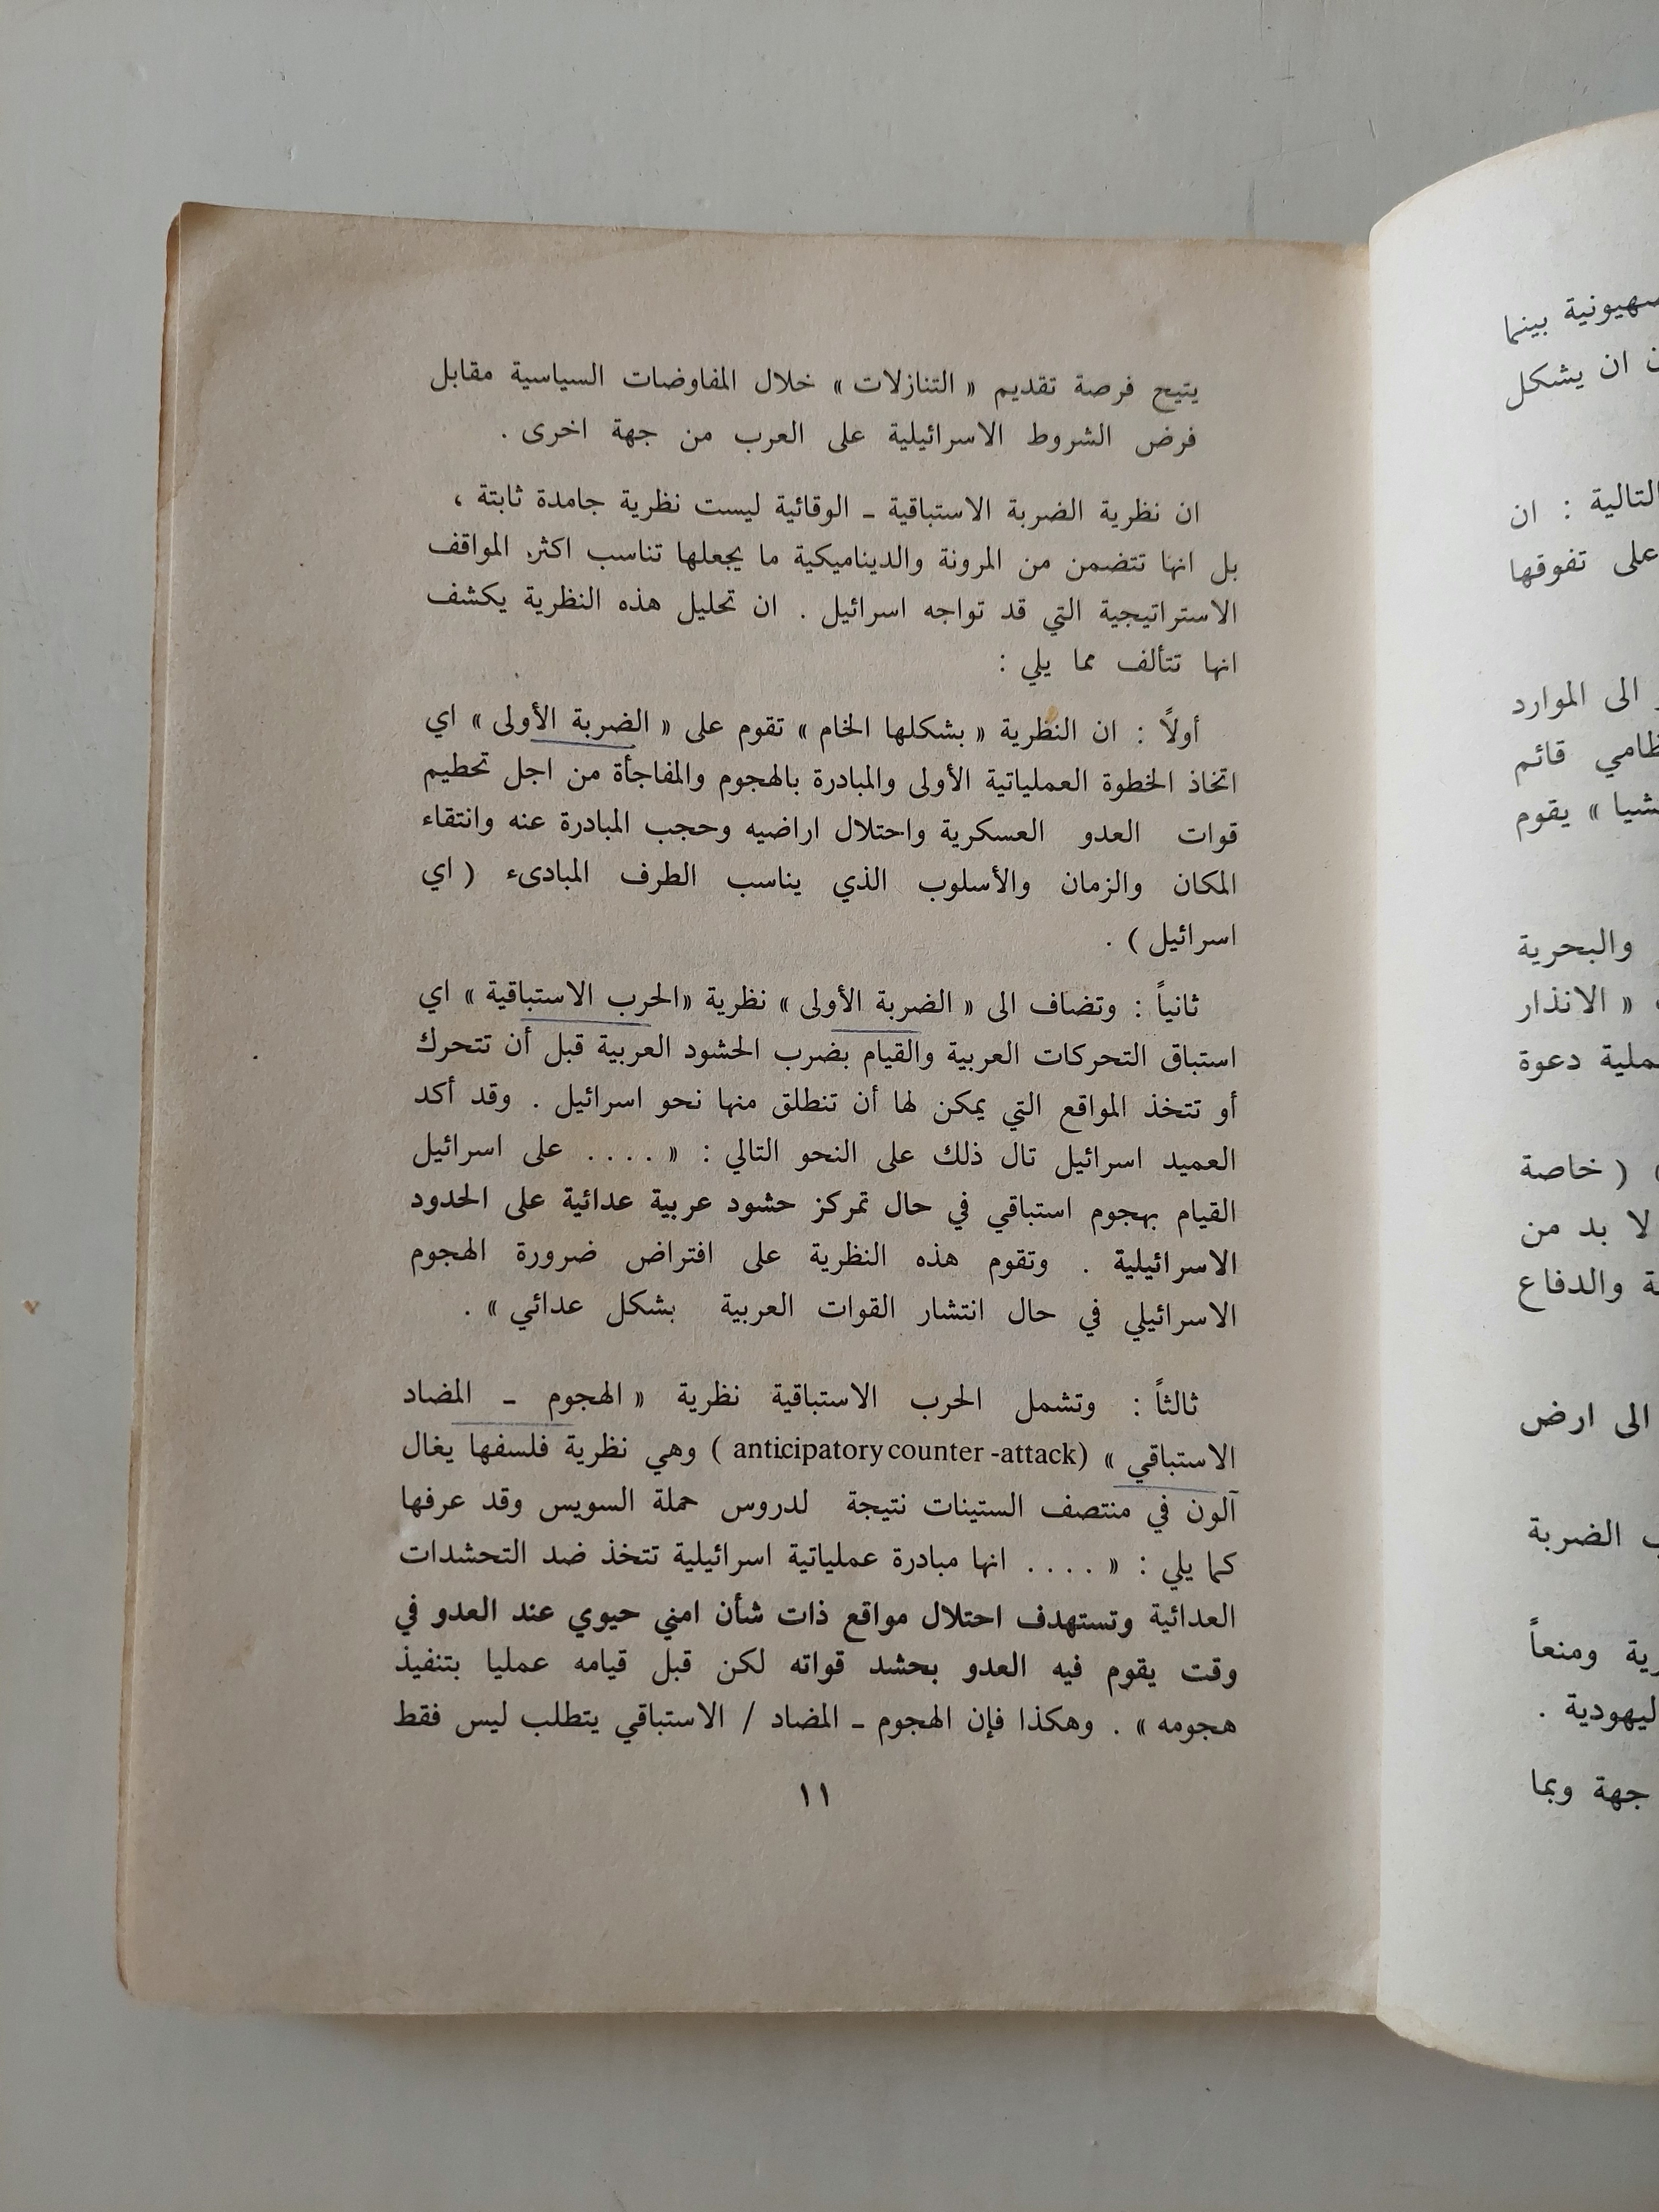 يتيح فرصة تقديم « التنازلات » خلال المفاوضات السياسية مقابل
فرض الشروط الاسرائيلية على العرب من جهة اخرى .
ان نظرية الضربة الاستباقية ـ الوقائية ليست نظرية جامدة ثابتة ،
بل انها تتضمن من المرونة والديناميكية ما يجعلها تناسب اكثر المواقف
الاستراتيجية التي قد تواجه اسرائيل . ان تحليل هذه النظرية يكشف
انها تتألف مما يلي :
أولاً : ان النظرية « بشكلها الخام » تقوم على « الضربة الأولى » اي
اتخاذ الخطوة العملياتية الأولى والمبادرة بالهجوم والمفاجأة من اجل تحطيم
قوات العدو العسكرية واحتلال اراضيه وحجب المبادرة عنه وانتقاء
المكان والزمان والأسلوب الذي يناسب الطرف المبادىء ( اي
اسرائيل ) .
ثانياً : وتضاف الى « الضربة الأولى » نظرية «الحرب الاستباقية » اي
استباق التحركات العربية والقيام بضرب الحشود العربية قبل أن تتحرك
أو تتخذ المواقع التي يمكن لها أن تنطلق منها نحو اسرائيل . وقد أكد
العميد اسرائيل تال ذلك على النحو التالي : « .... على اسرائيل
القيام بهجوم استباقي في حال تمركز حشود عربية عدائية على الحدود
الاسرائيلية . وتقوم هذه النظرية على افتراض ضرورة الهجوم
الاسرائيلي في حال انتشار القوات العربية بشكل عدائي » .
ثالثاً : وتشمل الحرب الاستباقية نظرية « الهجوم ـ المضاد
الاستباقي » (anticipatory counter -attack ) وهي نظرية فلسفها يغال
آلون في منتصف الستينات نتيجة لدروس حملة السويس وقد عرفها
كما يلي : « .... انها مبادرة عملياتية اسرائيلية تتخذ ضد التحشدات
العدائية وتستهدف احتلال مواقع ذات شأن امني حيوي عند العدو في
وقت يقوم فيه العدو بحشد قواته لكن قبل قيامه عمليا بتنفيذ
هجومه » . وهكذا فإن الهجوم ـ المضاد / الاستباقي يتطلب ليس فقط
١١
بينما
ان يشكل
التالية : ان
على تفوقها
الى الموارد
قائم
» يقوم
والبحرية
« الانذار
دعوة
( خاصة
لا بد من
والدفاع
الى ارض
الضربة
ومنعاً
اليهودية .
جهة وبما